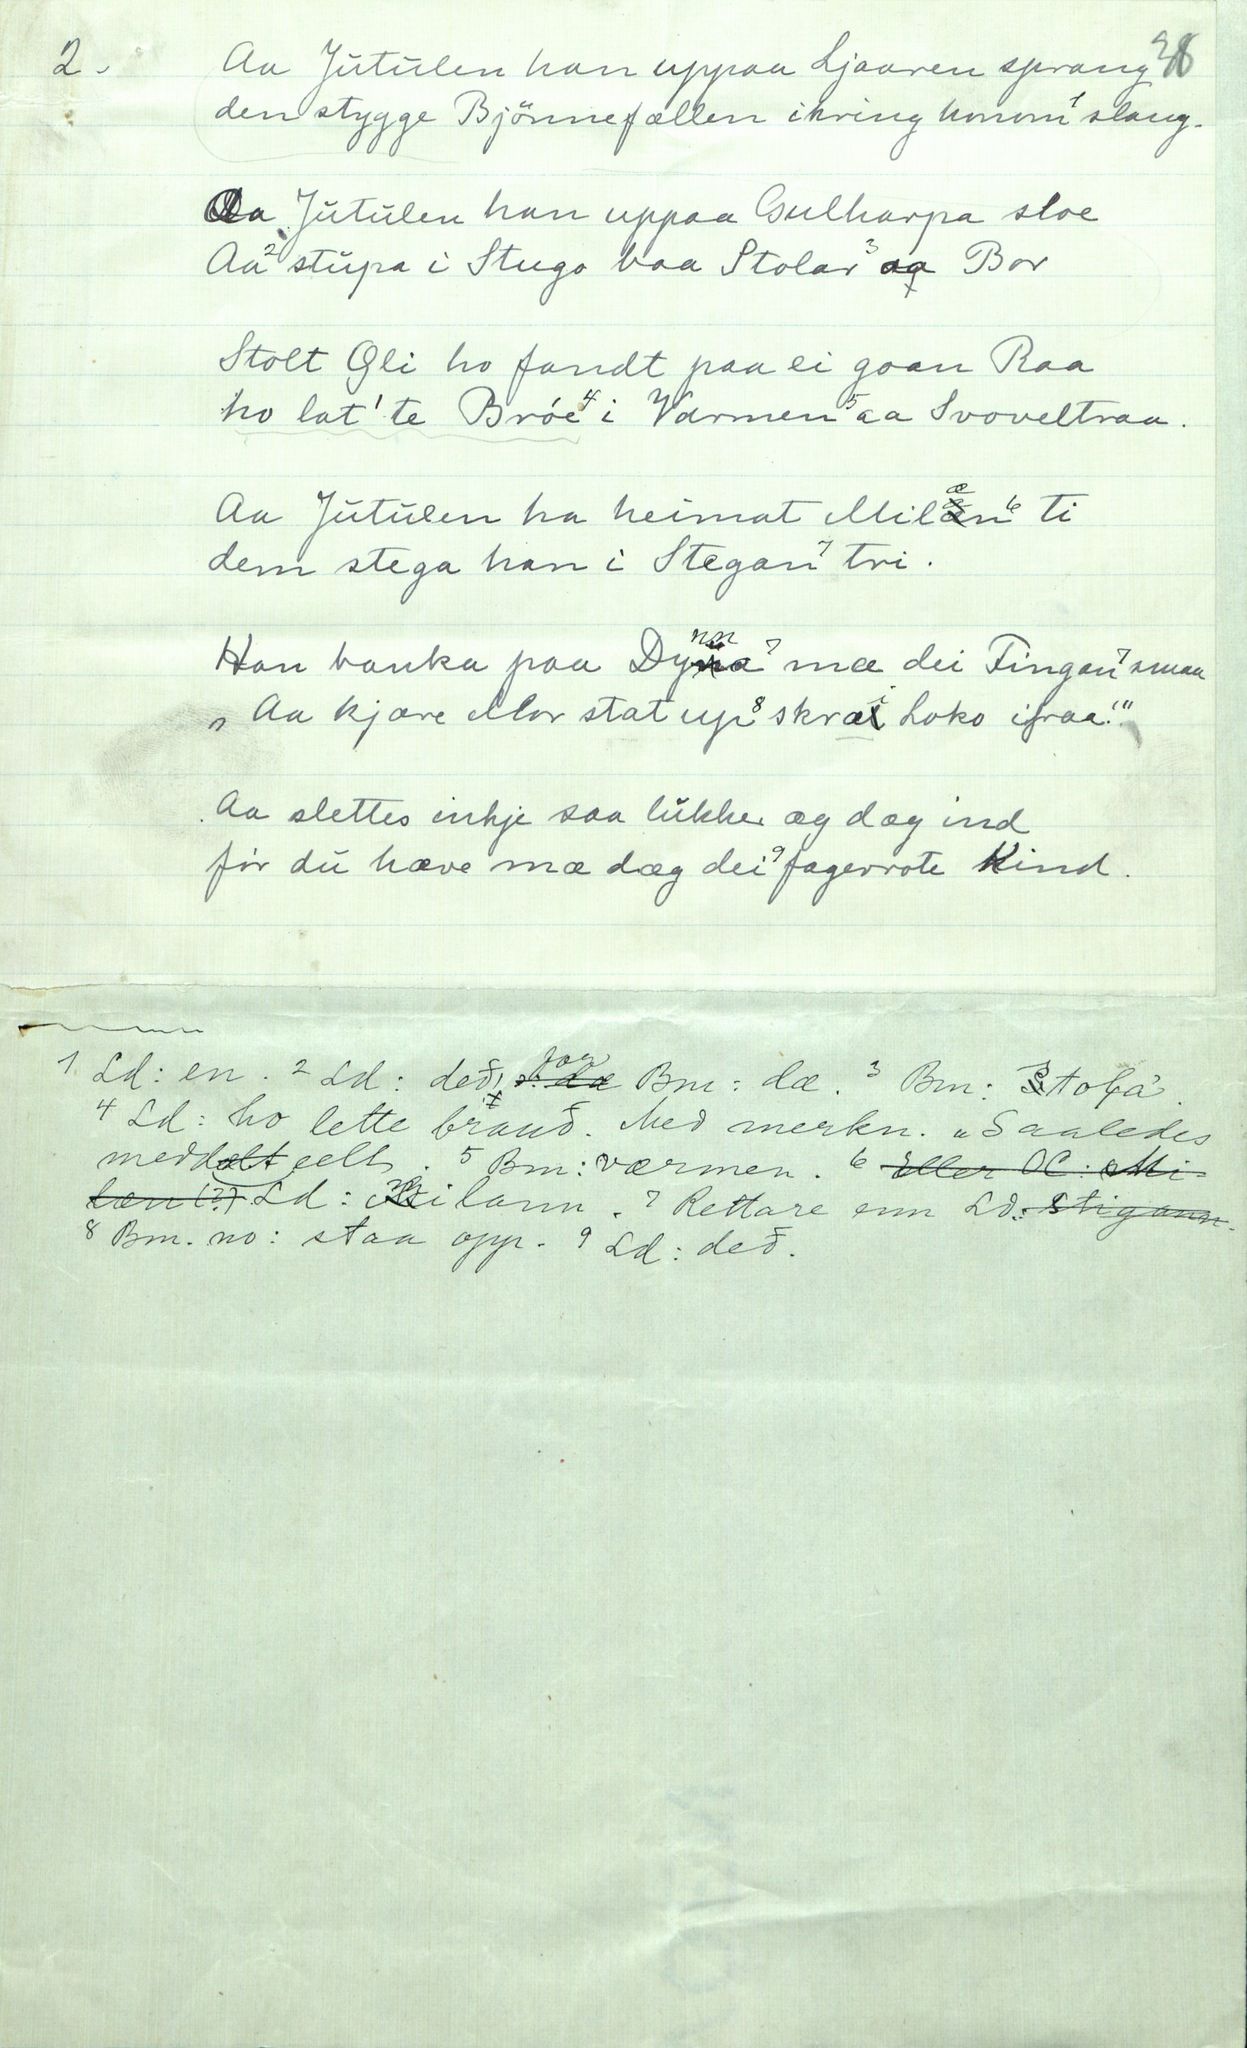 2. Aa Jutulen han uppaa Ljaaren sprang 38
den stygge Bjönnefællen ikring honom¹ slang.
Aa Jutulen han uppaa Gulharpa sloe
Aa² stupa i Stugo baa Stolar³ aa Bor
Stolt Øli ho fandt paa ei goan Raa
ho lat' te Bröe⁴ i Varmen⁵ aa Svoveltraa.
Aa Jutulen ha heimat Milæn⁶ ti
dem stega han i Stegan⁷ tri.
Han banka paa Dynna⁷ mæ dei Fingan⁷ smaa
„Aa kjære Mor stat up⁸ skræi Loko ifraa!"
Aa slettes inkje saa lukker æg dæg ind
för du hæve mæ dæg dei⁹ fagerrote Kind.
1 Ld: en. 2 Ld: deð, Bm: dæ. 3 Bm: Stola'.
4 Ld: ho lette brauð. Med merkn. „Saaledes
meddeelt. 5 Bm: værmen. 6 Eller OC: Mi-
læn (?) Ld: Milann. 7 Rettare enn Ld: stigann.
8 Bm. no: staa opp. 9 Ld: deð.